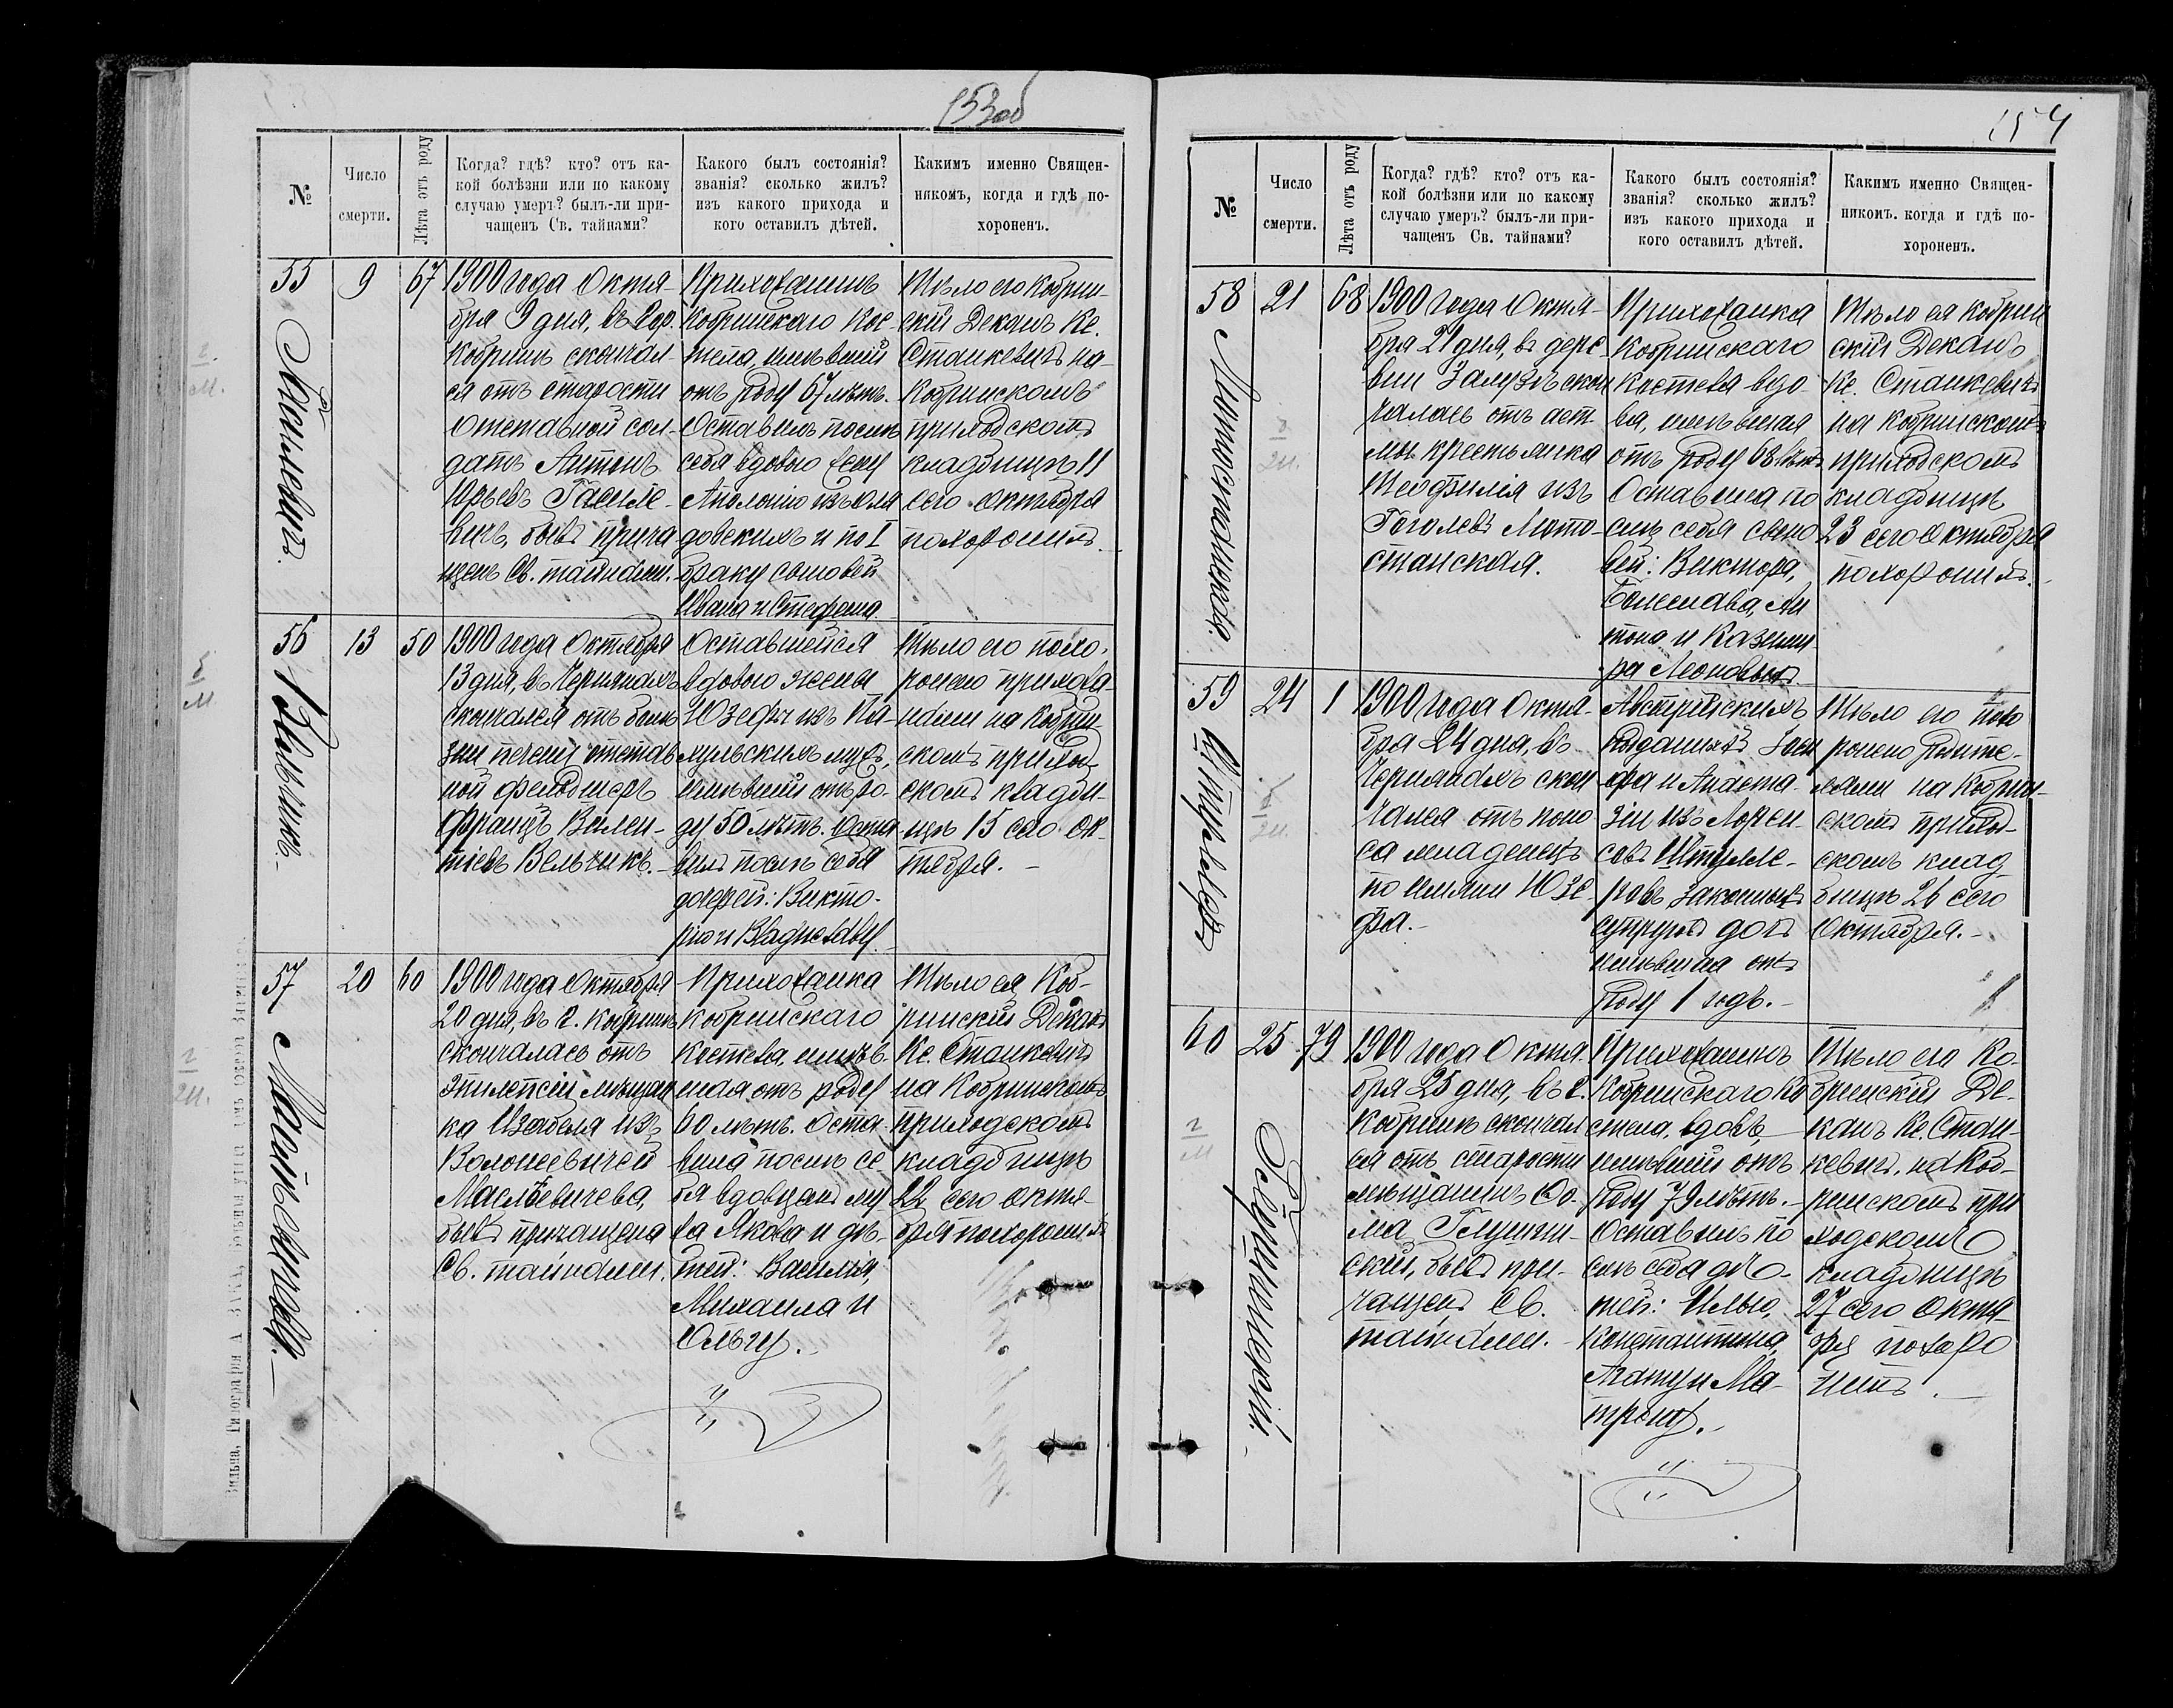 153об
№
Число
смерти.
Лѣта отъ роду
Когда? гдѣ? кто? отъ ка-
кой болѣзни или по какому
случаю умеръ? былъ-ли при-
чащенъ Св. тайнами?
Какого былъ состоянія?
званія? сколько жилъ?
изъ какого прихода и
кого оставилъ дѣтей.
Какимъ именно Священ-
никомъ, когда и гдѣ по-
хороненъ.
55
9
67
1900 года Октя-
бря 9 дня, въ гор.
Кобринѣ скончал-
ся отъ старости
отставной сол-
датъ Антонъ
Юрьевъ
бывъ прича
щенъ Св. тайнами.
Прихожанинъ
Кобринскаго кос-
тела, имѣвшій
отъ роду 67 лѣтъ.
Оставилъ послѣ
себя вдовою жену
Аполонію изъ
довскихъ и по I
браку сыновей
Ивана и Стефана.
Тѣло его Кобрин-
скій Деканъ Кс.
Станкевичъ на
Кобринскомъ
приходскомъ
кладбищѣ 11
сего Октября
похоронилъ.
56
Вельчикъ.
13
50
1900 года Октября
13 дня, въ Черняхахъ
скончался отъ болѣ
зни печени отстав
ной фельдшеръ
Францъ Вален-
тіевъ Вельчикъ.
Оставшейся
вдовою жены
Юзефы изъ Па-
хульскихъ мужъ,
имѣвшій отъ ро-
ду 50 лѣтъ. Оста
вилъ послѣ себя
дочерей: Викто-
рію и Владиславу.
Тѣло его похо-
ронено прихожа-
нами на Кобрин
скомъ приход-
скомъ кладби-
щѣ 15 сего Ок-
тября.
57
20
60
1900 года Октября
20 дня, въ г. Кобринѣ
скончалась отъ
эпилепсіи мѣщан
ка Изабеля изъ
бывъ причащена
Св. тайнами.
Прихожанка
Кобринскаго
костела, имѣв-
шая отъ роду
60 лѣтъ. Оста-
вила послѣ се-
бя вдовцомъ му
жа Якова и дѣ-
тей: Василія,
Михаила и
Ольгу.
Тѣло ея Коб-
ринскій Деканъ
Кс. Станкевичъ
на Кобринскомъ
приходскомъ
кладбищѣ
22 сего Октя-
бря похоронилъ
154
№
Число
смерти.
Лѣта отъ роду
Когда? гдѣ? кто? отъ ка-
кой болѣзни или по какому
случаю умеръ? былъ-ли при-
чащенъ Св. тайнами?
Какого былъ состоянія?
званія? сколько жилъ?
изъ какого прихода и
кого оставилъ дѣтей.
Какимъ именно Священ-
никомъ. когда и гдѣ по-
хороненъ.
58
21
68
1900 года Октя-
бря 21 дня, въ дере
вни Залузѣ скон
чалась отъ аст-
мы крестьянка
Теофилія изъ
Гоголевъ Мото-
станская.
Прихожанка
Кобринскаго
костела вдо-
ва, имѣвшая
отъ роду 68 лѣтъ
Оставила по
слѣ себя сыно
вей: Виктора,
Болеслава, Ан
тона и Казими
ра
Тѣло ея Кобрин
скій Деканъ
Кс. Станкевичъ
на Кобринскомъ
приходскомъ
кладбищѣ
23 сего Октября
похоронилъ.
59
24
1
1900 года Октя-
бря 24 дня, въ
Черняхахъ скон
чался отъ поно
са младенецъ
по имяни Юзе-
фа.
Австрійскихъ
подданыхъ Іози
фа и Анаста-
зіи изъ Лорен-
совъ
законныхъ
супруговъ дочь
имѣвшая отъ
роду 1 годъ.
Тѣло его похо
ронено родите-
лями на Кобрин-
скомъ приход-
скомъ клад
бищѣ 26 сего
Октября.
60
Глушинскій.
25
79
1900 года Октя-
бря 25 дня, въ г.
Кобринѣ скончал
ся отъ старости
мѣщанинъ Ѳо-
ма Глушин-
скій, бывъ при-
чащенъ Св.
тайнами.
Прихожанинъ
Кобринскаго ко
стела, вдовъ,
имѣвшій отъ
роду 79 лѣтъ.
Оставилъ по
слѣ себя дѣ-
тей: Илью,
Константина,
Агату и Ма-
трону.
Тѣло его Ко-
бринскій Де-
канъ Кс. Стан-
кевичъ, на Коб-
ринскомъ при
ходскомъ
кладбищѣ
27 сего Октя-
бря похоро
нилъ.